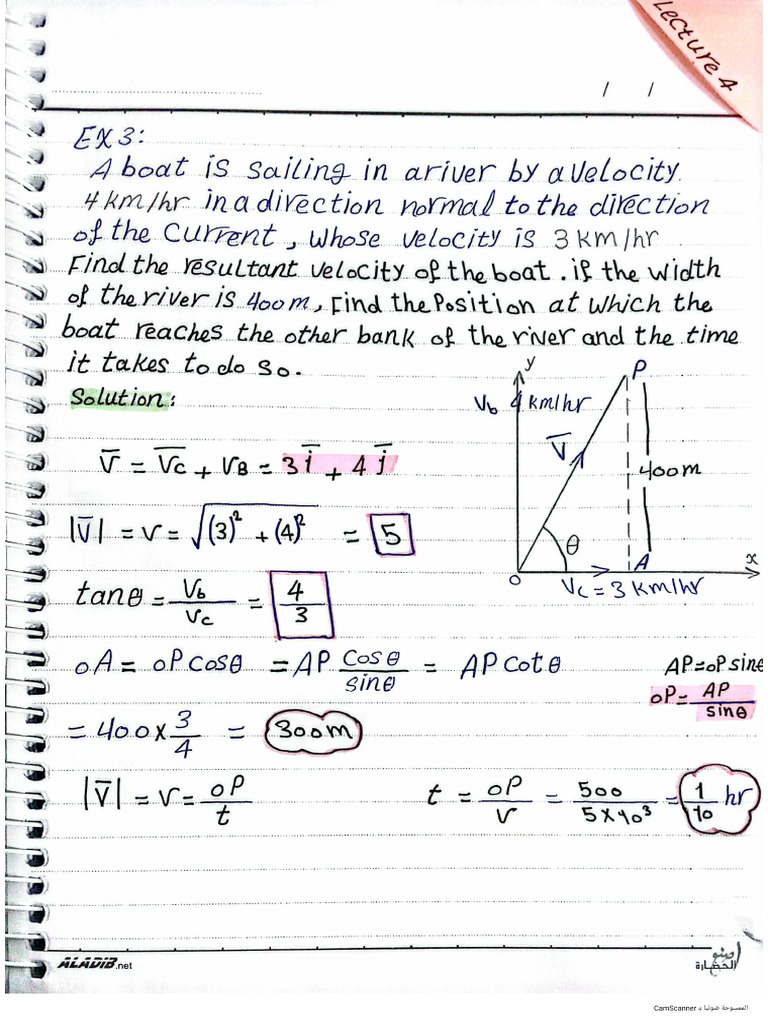 Lecture 4
/ /
EX 3:
A boat is sailing in a river by a velocity
4 km/hr in a direction normal to the direction
of the current, whose velocity is 3 km/hr
Find the resultant velocity of the boat. if the width
of the river is 400m, Find the Position at which the
boat reaches the other bank of the river and the time
it takes to do so.
Solution:
y
P
Vb 4 km/hr
V̅
400m
θ
o
A
x
Vc = 3 km/hr
V̅ = V̅c + VB = 3 i̅ + 4 j̅
|V̅| = v = √(3)² + (4)² = 5
tanθ = Vb/Vc = 4/3
oA = oP cosθ = AP cosθ/sinθ = AP cotθ
AP = oP sinθ
oP = AP/sinθ
= 400 × 3/4 = 300m
|V̅| = v = oP/t
t = oP/v = 500/5×10³ = 1/10 hr
ALADIB.net
الحضارة
الممسوحة ضوئيا بـ CamScanner